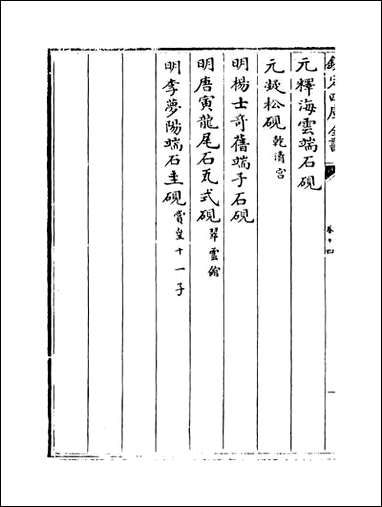 欽定四庫全書
卷十四
元釋海雲端石硯
元凝松硯 乾清宮
明楊士奇舊端子石硯
明唐寅龍尾石瓦式硯 翠雲館
明李夢陽端石圭硯 賞皇十一子